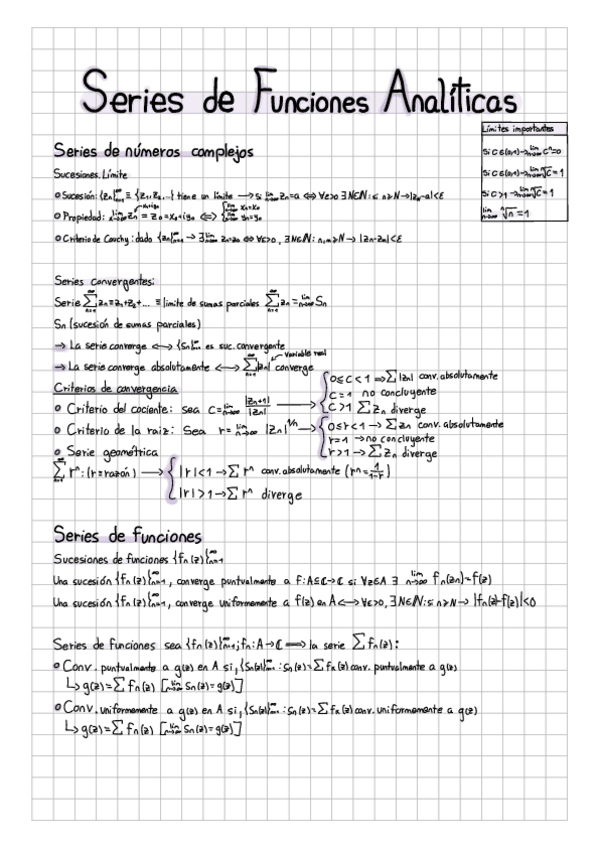 Series de Funciones Analíticas
Límites importantes
Si C∈(0,1)→lim n→∞ Cⁿ=0
Si C∈(0,1)→lim n→∞ ⁿ√C=1
Si C>1→lim n→∞ ⁿ√C=1
lim n→∞ ⁿ√n=1
Series de números complejos
Sucesiones. Límite
Sucesión: {Zn}∞n=1 ≡ {Z1,Z2,...} tiene un límite → si lim n→∞ Zn=a ⇔ ∀ε>0 ∃N∈ℕ: si n≥N→|Zn-a|<ε
Propiedad: lim n→∞ Zn = Z0 = x0+iy0 ⇔ { lim n→∞ xn=x0 lim n→∞ yn=y0
Criterio de Cauchy: dado {Zn}∞n=1 → ∃ lim n→∞ Zn=Z0 ⇔ ∀ε>0, ∃N∈ℕ: n,m≥N→ |Zn-Zm|<ε
Series convergentes:
Serie ∑∞n=1 Zn=Z1+Z2+... ≡ límite de sumas parciales ∑∞n=1 Zn = lim n→∞ Sn
Sn (sucesión de sumas parciales)
→ La serie converge ⟷ {Sn}∞n=1 es suc. convergente
→ La serie converge absolutamente ⟷ ∑∞n=1 |Zn| converge ← variable real
Criterios de convergencia
Criterio del cociente: sea C=lim n→∞ |Zn+1|/|Zn| → { 0≤C<1 ⇒ ∑|Zn| conv. absolutamente
C=1 no concluyente
C>1 ∑Zn diverge
Criterio de la raiz: Sea r= lim n→∞ |Zn|^1/n → { 0≤r<1 → ∑Zn conv. absolutamente
r=1 → no concluyente
r>1 → ∑Zn diverge
Serie geométrica
∑ rⁿ: (r≡razón) → { |r|<1→∑rⁿ conv. absolutamente (rⁿ=1/1-r)
|r|>1→∑rⁿ diverge
Series de funciones
Sucesiones de funciones {fn(z)}∞n=1
Una sucesión {fn(z)}∞n=1, converge puntualmente a f:A⊆ℂ→ℂ si ∀z∈A ∃ lim n→∞ fn(zn)=f(z)
Una sucesión {fn(z)}∞n=1, converge uniformemente a f(z) en A⟷∀ε>0, ∃N∈ℕ: si n≥N→ |fn(z)-f(z)|<0
Series de funciones sea {fn(z)}∞n=1; fn:A→ℂ ⟹ la serie ∑fn(z):
Conv. puntualmente a g(z) en A si, {Sn(z)}∞n=1 : Sn(z)=∑fk(z) conv. puntualmente a g(z)
↳ g(z)=∑fn(z) [lim n→∞ Sn(z)=g(z)]
Conv. uniformemente a g(z) en A si, {Sn(z)}∞n=1 : Sn(z)=∑fk(z) conv. uniformemente a g(z)
↳ g(z)=∑fn(z) [lim n→∞ Sn(z)=g(z)]